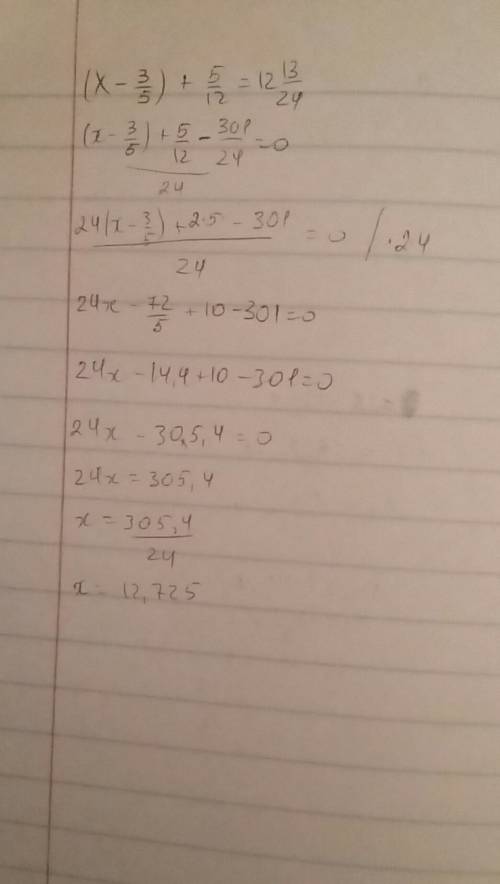 (x - 3/5) + 5/12 = 12 13/24
(x - 3/5) + 5/12 - 301/24 = 0
24
24(x - 3/5) + 2·5 - 301 / 24 = 0 / ·24
24x - 72/5 + 10 - 301 = 0
24x - 14,4 + 10 - 301 = 0
24x - 305,4 = 0
24x = 305,4
x = 305,4/24
x = 12,725